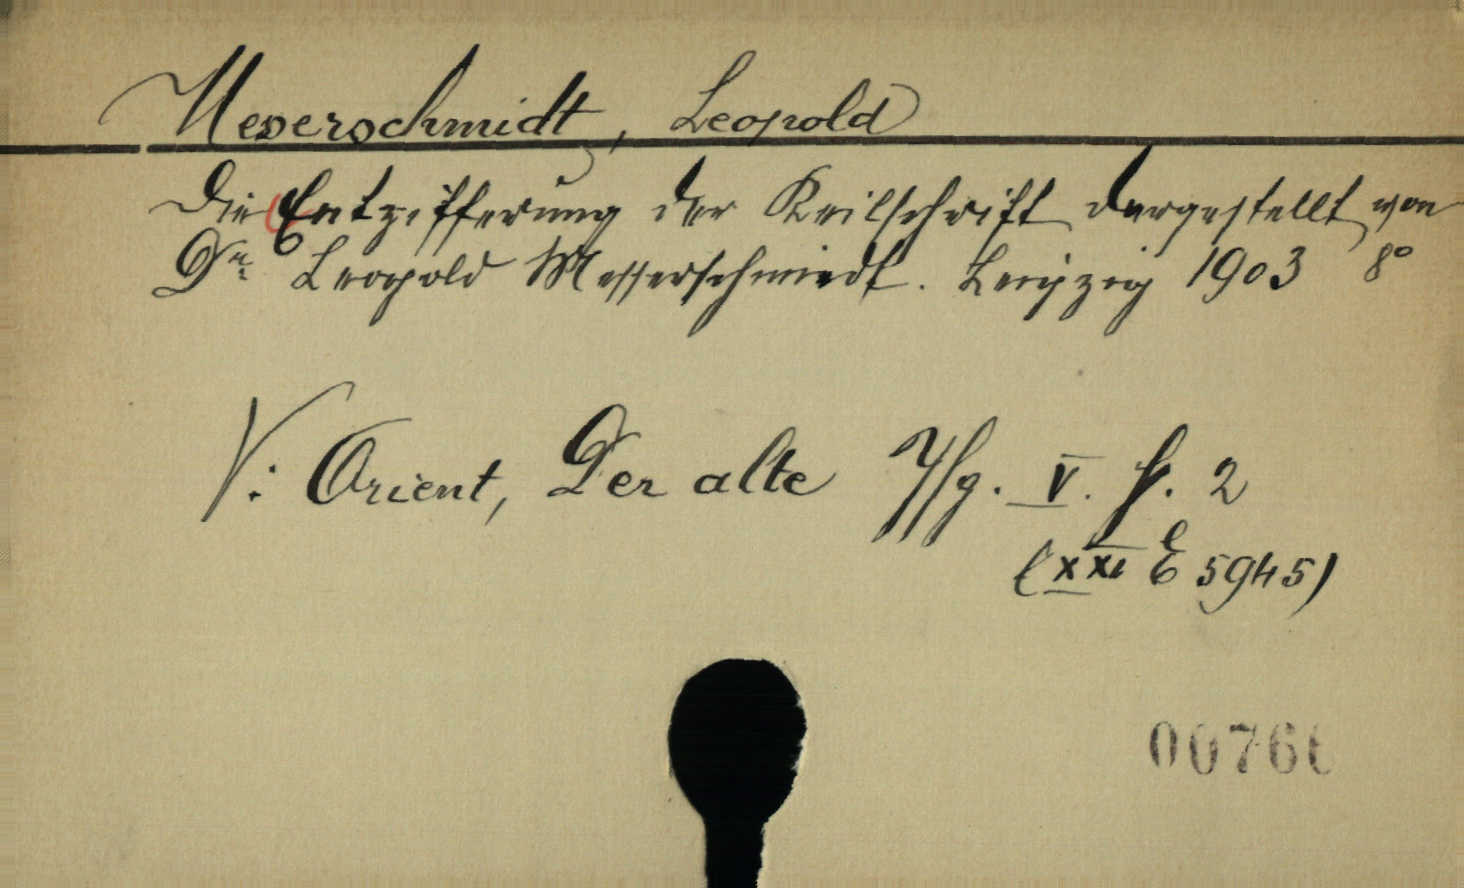 Messerschmidt, Leopold
Die Entzifferung der Keilschrift dargestellt von
Dr. Leopold Messerschmidt. Leipzig 1903 8°
V: Orient, Der alte Jhg. V. H. 2
(XXI E 5945)
00766